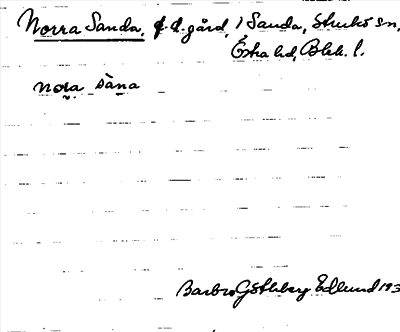 Norra Sanda, f.d. gård, i Sanda, Sturkö sn,
Östra hd, Blek. l.
nora sàna
Barbro Göthberg Edlund 193